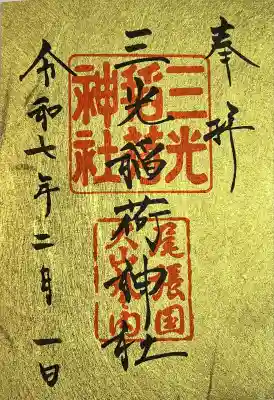 奉拝
三光稲荷神社
令和七年二月一日
三光
稲荷
神社
尾張国
犬山城内